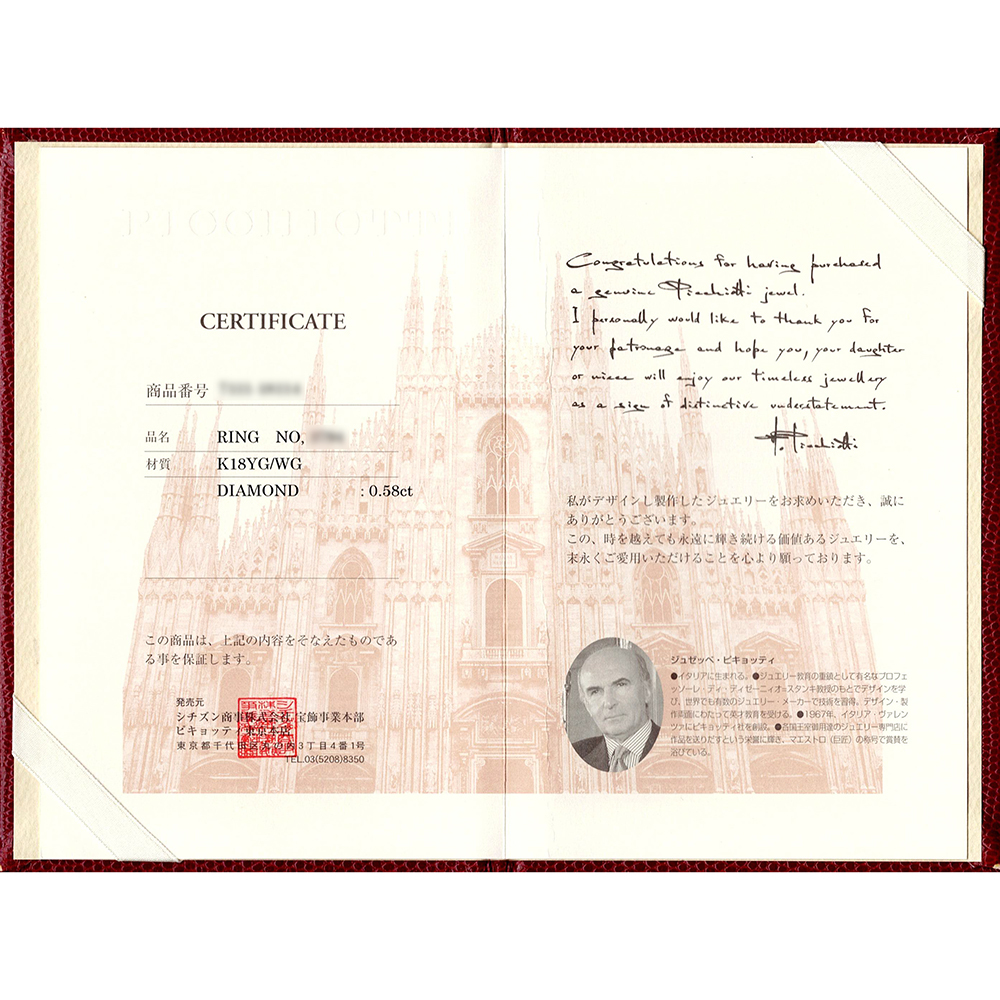 PICCHIOTTI
CERTIFICATE
商品番号
品名 RING NO,
材質 K18YG/WG
DIAMOND : 0.58ct
この商品は、上記の内容をそなえたものであ
る事を保証します。
発売元
シチズン商事株式会社 宝飾事業本部
ピキョッティ東京本店
東京都千代田区丸の内3丁目4番1号
TEL.03(5208)8350
Congratulations for having purchased
a genuine Picchiotti jewel.
I personally would like to thank you for
your patronage and hope you, your daughter
or niece will enjoy our timeless jewellery
as a sign of distinctive understatement.
Picchiotti
私がデザインし製作したジュエリーをお求めいただき、誠に
ありがとうございます。
この、時を越えても永遠に輝き続ける価値あるジュエリーを、
末永くご愛用いただけることを心より願っております。
ジュゼッペ・ピキョッティ
●イタリアに生まれる。●ジュエリー教育の重鎮として有名なプロフェ
ッソーレ・ディ・ディゼーニィオ=スタンキ教授のもとでデザインを学
び、世界でも有数のジュエリー・メーカーで技術を習得。デザイン・製
作両面にわたって英才教育を受ける。●1967年、イタリア・ヴァレン
ツァにピキョッティ社を創設。●各国王室御用達のジュエリー専門店に
作品を送りだすという栄誉に輝き、マエストロ(巨匠)の称号で賞賛を
浴びている。